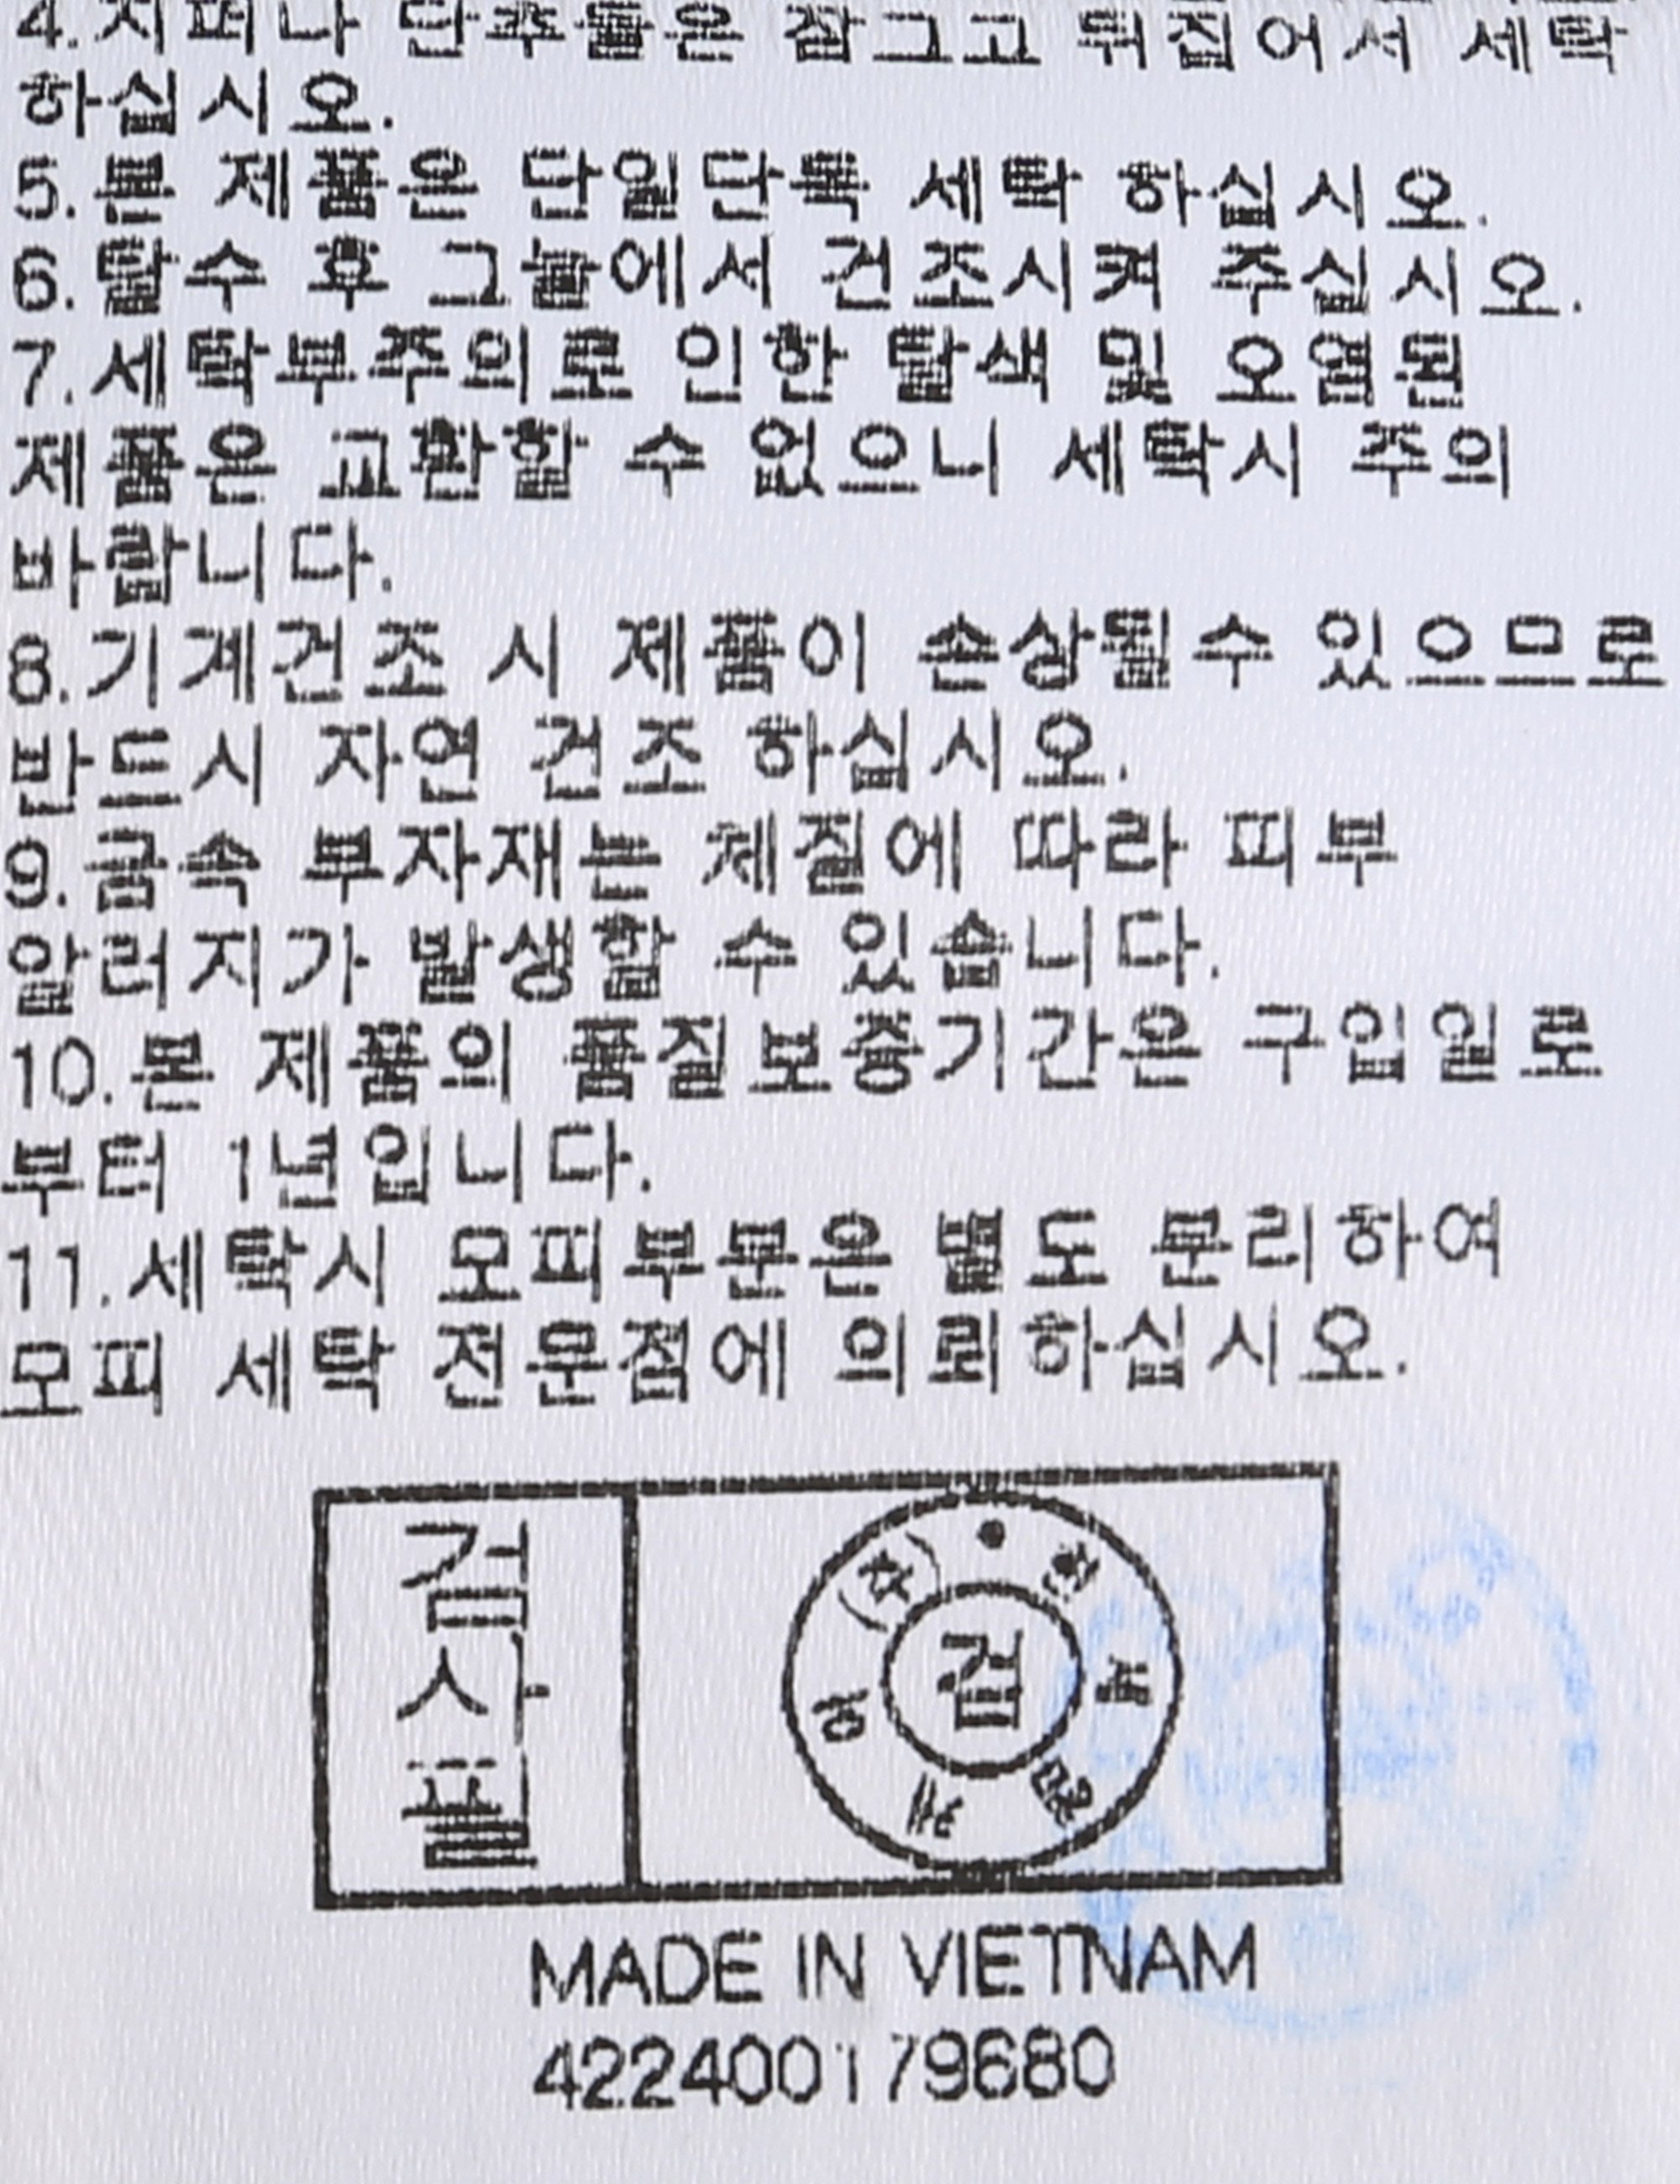 4.지퍼나 단추들은 잠그고 뒤집어서 세탁
하십시오.
5.본 제품은 단일단독 세탁 하십시오.
6.탈수 후 그늘에서 건조시켜 주십시오.
7.세탁부주의로 인한 탈색 및 오염된
제품은 교환할 수 없으니 세탁시 주의
바랍니다.
8.기계건조 시 제품이 손상될수 있으므로
반드시 자연 건조 하십시오.
9.금속 부자재는 체질에 따라 피부
알러지가 발생할 수 있습니다.
10.본 제품의 품질보증기간은 구입일로
부터 1년입니다.
11.세탁시 모피부분은 별도 분리하여
모피 세탁 전문점에 의뢰하십시오.
검사필
검
MADE IN VIETNAM
422400179680